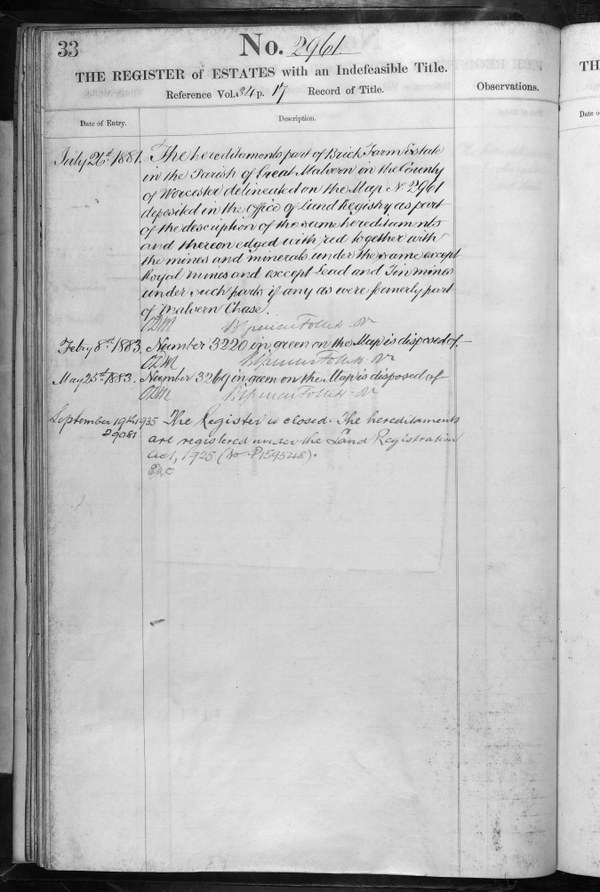 33
No. 2961
THE REGISTER of ESTATES with an Indefeasible Title.
Reference Vol. 34 p. 17 Record of Title.
Observations.
TH
Date of Entry.
Description.
Date o
July 26th 1881. The hereditaments part of Brick Farm Estate
in the Parish of Great Malvern in the County
of Worcester delineated on the Map No. 2961
deposited in the office of Land Registry as part
of the description of the same hereditaments
and thereon edged with red together with
the mines and minerals under the same except
Royal mines and except Lead and Tin mines
under such parts if any as were formerly part
of Malvern Chase.
Follett
Feby 8th 1883. Number 3220 in green on the Map is disposed of
Follett
May 25th 1883. Number 3269 in green on the Map is disposed of
Follett
September 19th 1935 The Register is closed. The hereditaments
29081 are registered under the Land Registration
Act, 1925 (No P159548).